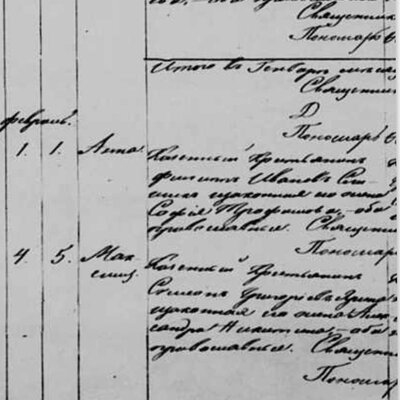 Священник
Пономарь
Итого въ Генварѣ
Священник
Пономарь
февраль.
1. 1. Анна
Казенный крестьянинъ
Филиппъ Ивановъ
законная его жена
Софія Трофимова, оба
православные. Священ
Пономар
4. 5. Мак
сим
Казенный крестьянинъ
Симеонъ Григорьевъ
законная его жена Алек
сандра Никитина, оба
православные. Священ
Пономар